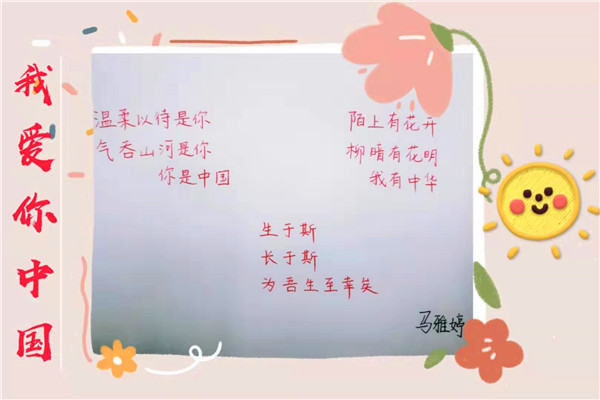 我爱你中国
温柔以待是你
气吞山河是你
你是中国
陌上有花开
柳暗有花明
我有中华
生于斯
长于斯
为吾生至幸矣
马雅婷